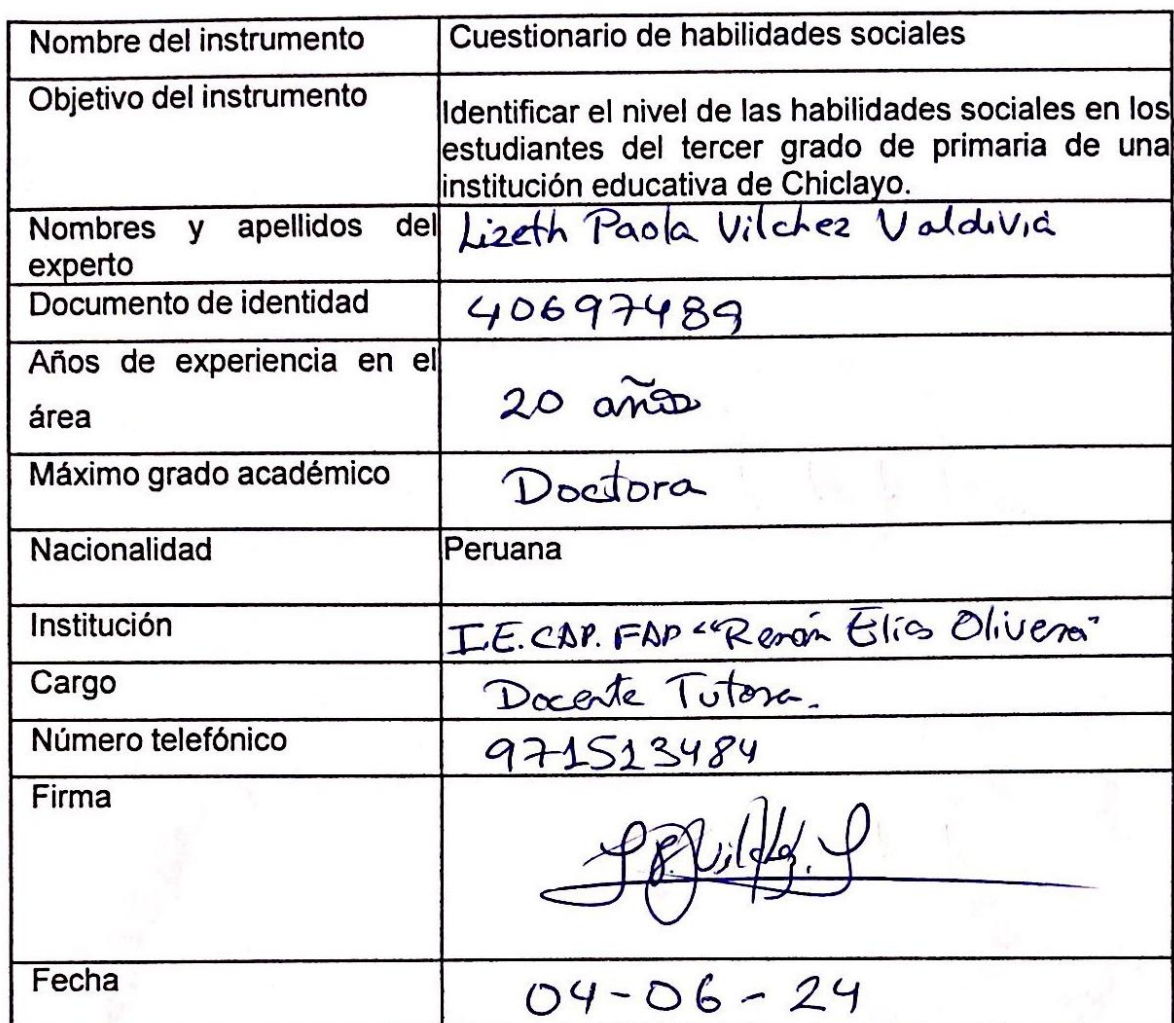 Nombre del instrumento
Cuestionario de habilidades sociales
Objetivo del instrumento
Identificar el nivel de las habilidades sociales en los
estudiantes del tercer grado de primaria de una
institución educativa de Chiclayo.
Nombres y apellidos del
experto
Lizeth Paola Vilchez Valdivia
Documento de identidad
40697489
Años de experiencia en el
área
20 años
Máximo grado académico
Doctora
Nacionalidad
Peruana
Institución
I.E. CAP. FAP "Renán Elías Olivera"
Cargo
Docente Tutora.
Número telefónico
971513484
Firma
Fecha
04-06-24